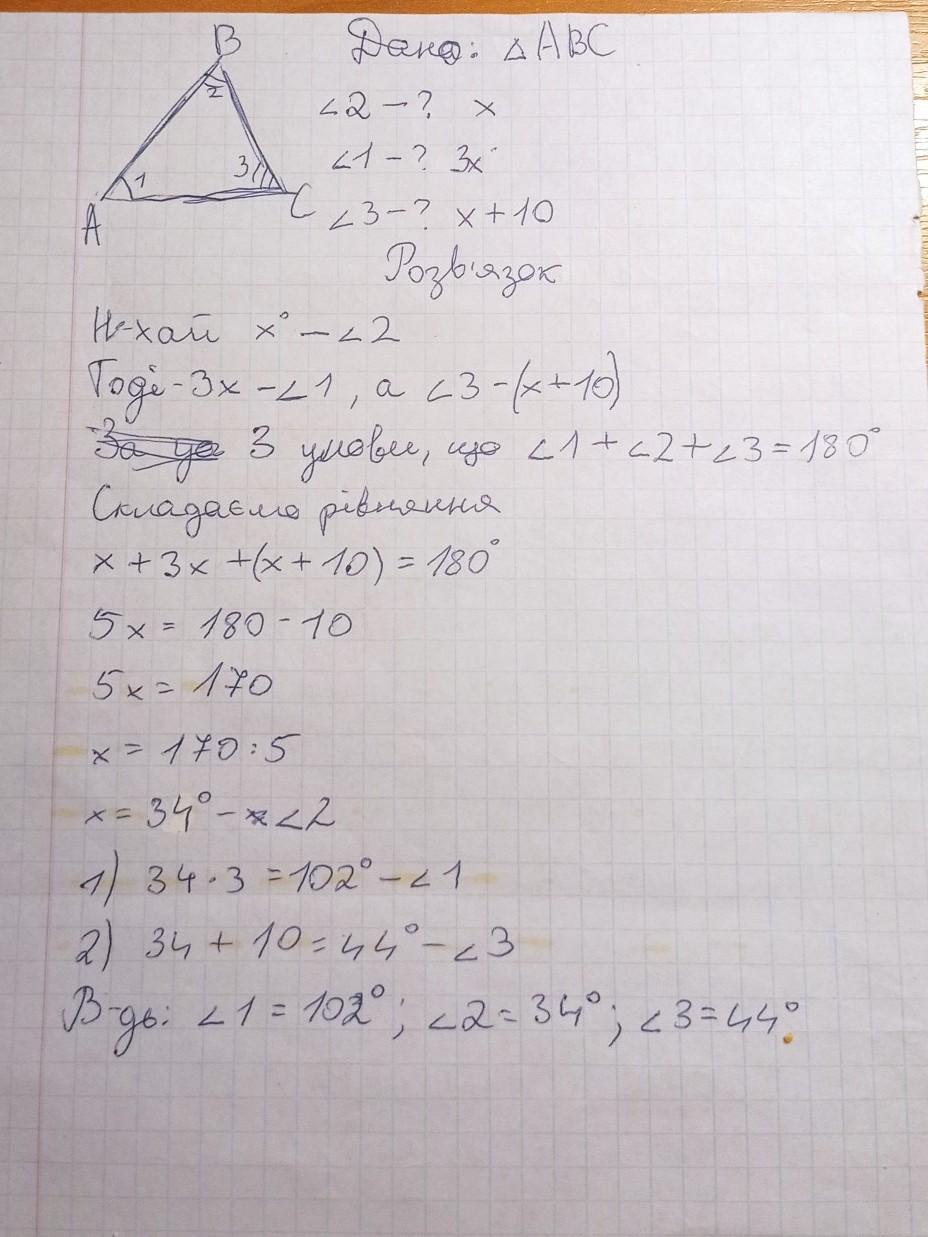 B
2
1
3
A
C
Дано: △ABC
∠2 – ? x
∠1 – ? 3x
∠3 – ? x + 10
Розв'язок
Н-хай x° – ∠2
Тоді - 3x – ∠1, а ∠3 – (x + 10)
З умови, що ∠1 + ∠2 + ∠3 = 180°
Складаємо рівняння
x + 3x + (x + 10) = 180°
5x = 180 - 10
5x = 170
x = 170 : 5
x = 34° – ∠2
1) 34 · 3 = 102° – ∠1
2) 34 + 10 = 44° – ∠3
В-дь: ∠1 = 102°; ∠2 = 34°; ∠3 = 44°.